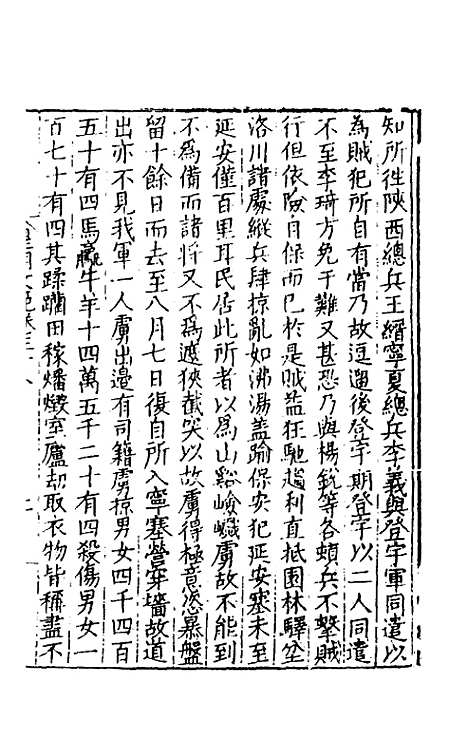 知所徃陜西總兵王縉寧夏總兵李義與登宇軍同遣以
為賊犯所自有當乃故逗遛後登宇期登宇以二人同遣
不至李琦方免于難又甚恐乃與楊銳等各頓兵不擊賊
行但依險自保而已於是賊益狂馳趨利直抵園林驛全
洛川諸處縱兵肆掠亂如沸湯蓋踰保安犯延安塞未至
延安僅百里耳民居此所者以為山谿嶮巇虜故不能到
不為備而諸將又不為遮狹截突以故虜得極意恣暴盤
留十餘日而去至八月七日復自所入寧塞營穿墻故道
出亦不見我軍一人虜出邊有司籍虜掠男女四千四百
五十有四馬驘牛羊十四萬五千二十有四殺傷男女一
百七十有四其蹂躪田稼燔燬室廬刼取衣物皆稱盡不